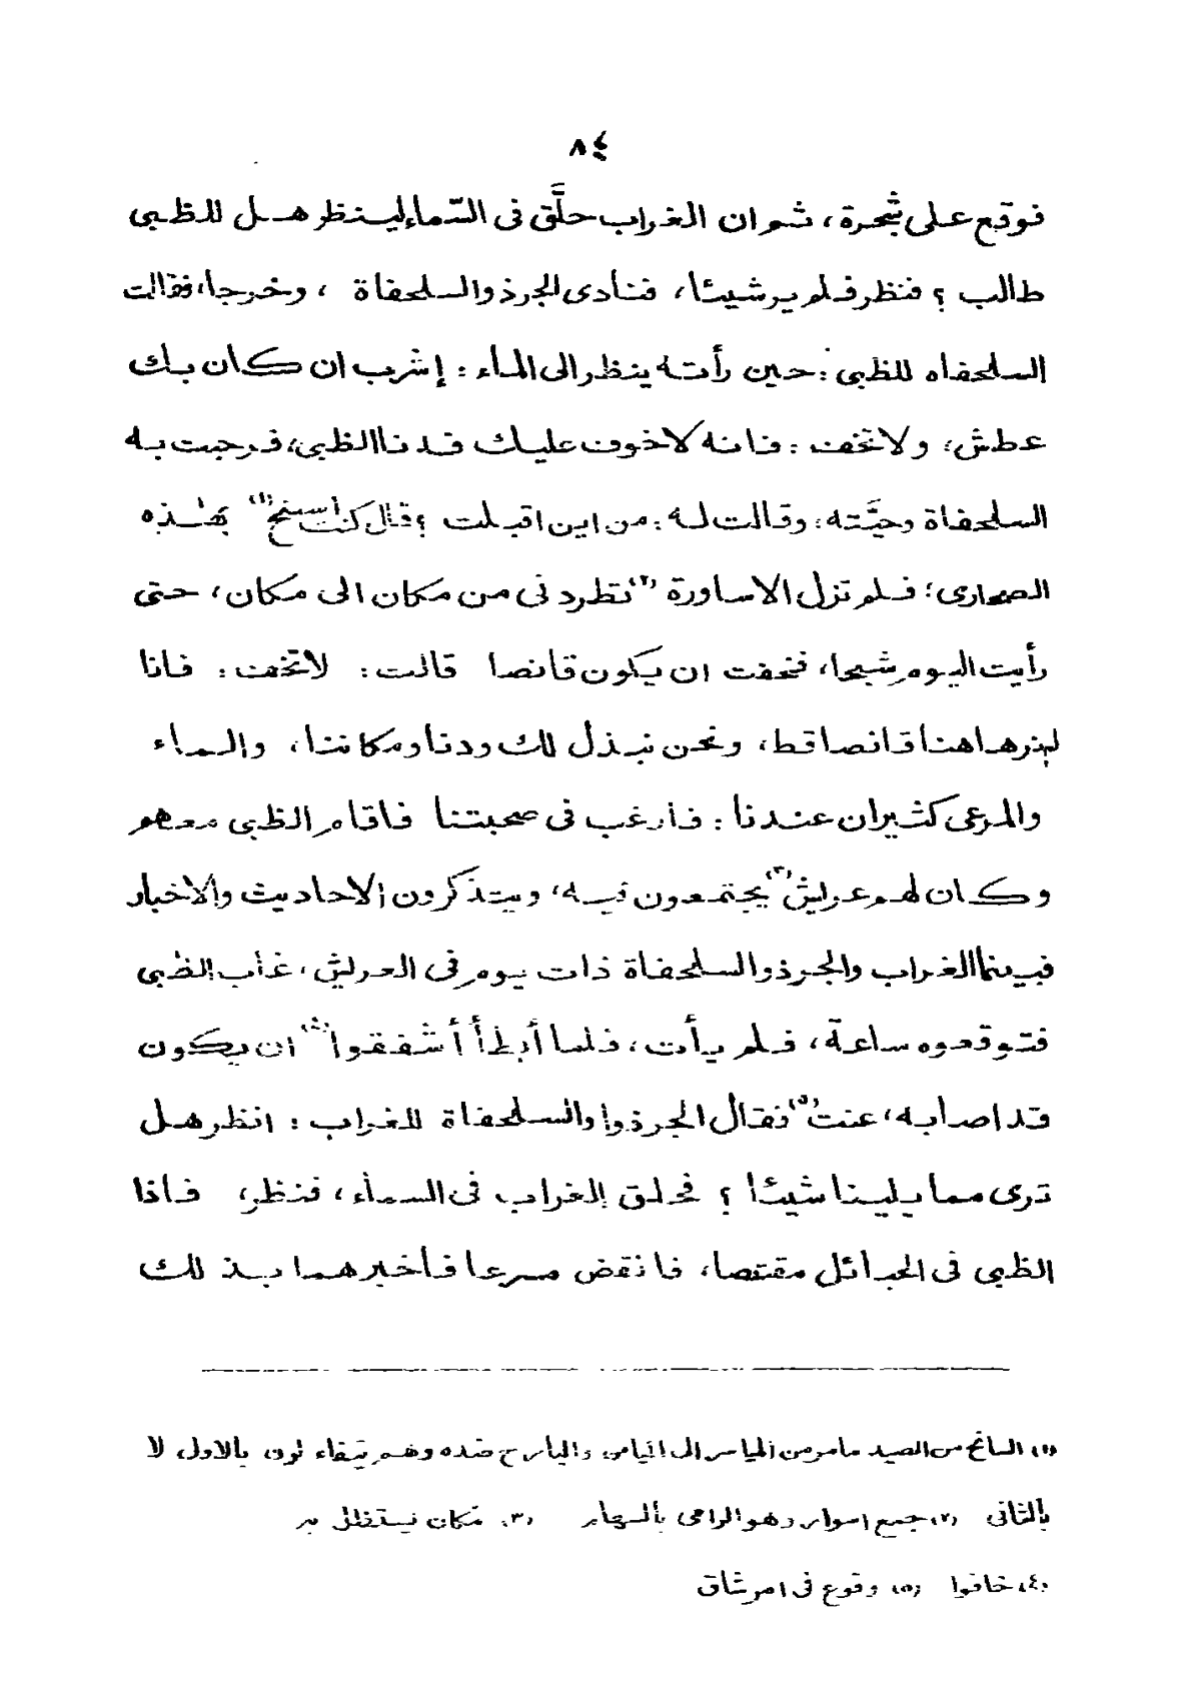 ٨٤
فوقع على شجرة، ثم ان الغراب حلَّق فى السّماء لينظر هل للظبى
طالب ؟ فنظر فلم ير شيئا، فنادى الجرذ والسلحفاة ، وخرجا، فقالت
السلحفاه للظبى : حين رأته ينظر الى الماء : إشرب ان كان بك
عطش، ولا تخف : فانه لا خوف عليك فدنا الظبى، فرحبت به
السلحفاة وحيَّته، وقالت له : من اين اقبلت ؟ قال كنت أسنح (١) بهٰذه
الصحارى؛ فلم تزل الاساورة (٢) تطردنى من مكان الى مكان، حتى
رأيت اليوم شبحا، فخفت ان يكون قانصا قالت : لا تخف : فانا
لم نر هاهنا قانصا قط، ونحن نبذل لك ودنا ومكاننا، والماء
والمرعى كثيران عندنا : فأرغب فى صحبتنا فاقام الظبى معهم
وكان لهم عريش (٣) يجتمعون فيه، ويتذكرون الاحاديث والاخبار
فبينما الغراب والجرذ والسلحفاة ذات يوم فى العريش، غاب الظبى
فتوقعوه ساعة، فلم يأت، فلما أبطأ أشفقوا (٤) ان يكون
قد اصابه، عنت (٥) فقال الجرذ والسلحفاة للغراب : انظر هل
ترى مما يلينا شيئا ؟ فحلق الغراب فى السماء، فنظر، فاذا
الظبى فى الحبائل مقتنصا، فانقض مسرعا فأخبرهما بذلك
(١) السانح من الصيد مامر من المياسر الى الميامن والبارح ضده وهم بالاول لا
بالثانى (٢) جمع اسوار وهو الرامى بالسهام (٣) مكان يستظل به
(٤) خافوا (٥) وقوع فى امر شاق